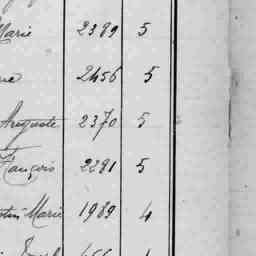 Marie 2389 5
2456 5
Auguste 2370 5
François 2281 5
Marie 1989 4